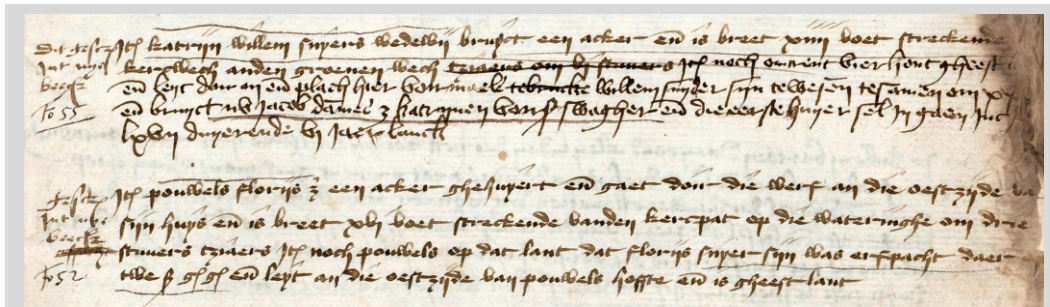 Dit gescr Itez katrijn willem snyers wedewij bruyct een acker en is breet xiiii voet streckende
Int nije kercwech anden groenen wech tziaers om vi stuvers Itez noch omtrent vier hont gheest
boeck en leyt daer an en plach hier voirmaels willem snyder sijn te wesen tesamen om
fo 55 en bruyct nv Jacob damez z katrynen vors swagher en die eerste huyer sel In gaen Int
lxvii duyerende vi Jaer lanck
gescr Itez pouwels florijs z een acker ghehuyert en gaet doir die werf an die oestzijde va
Int nije sijn huys en is breet xvi voet streckende vanden kercpat op die wateringhe om drie
boeck stuvers tziaers Itez noch pouwels op dat lant dat florijs snyer sijn was erfpacht daer
fo 52 twe en leyt an die oestzijde van pouwels hoffte en is gheest lant